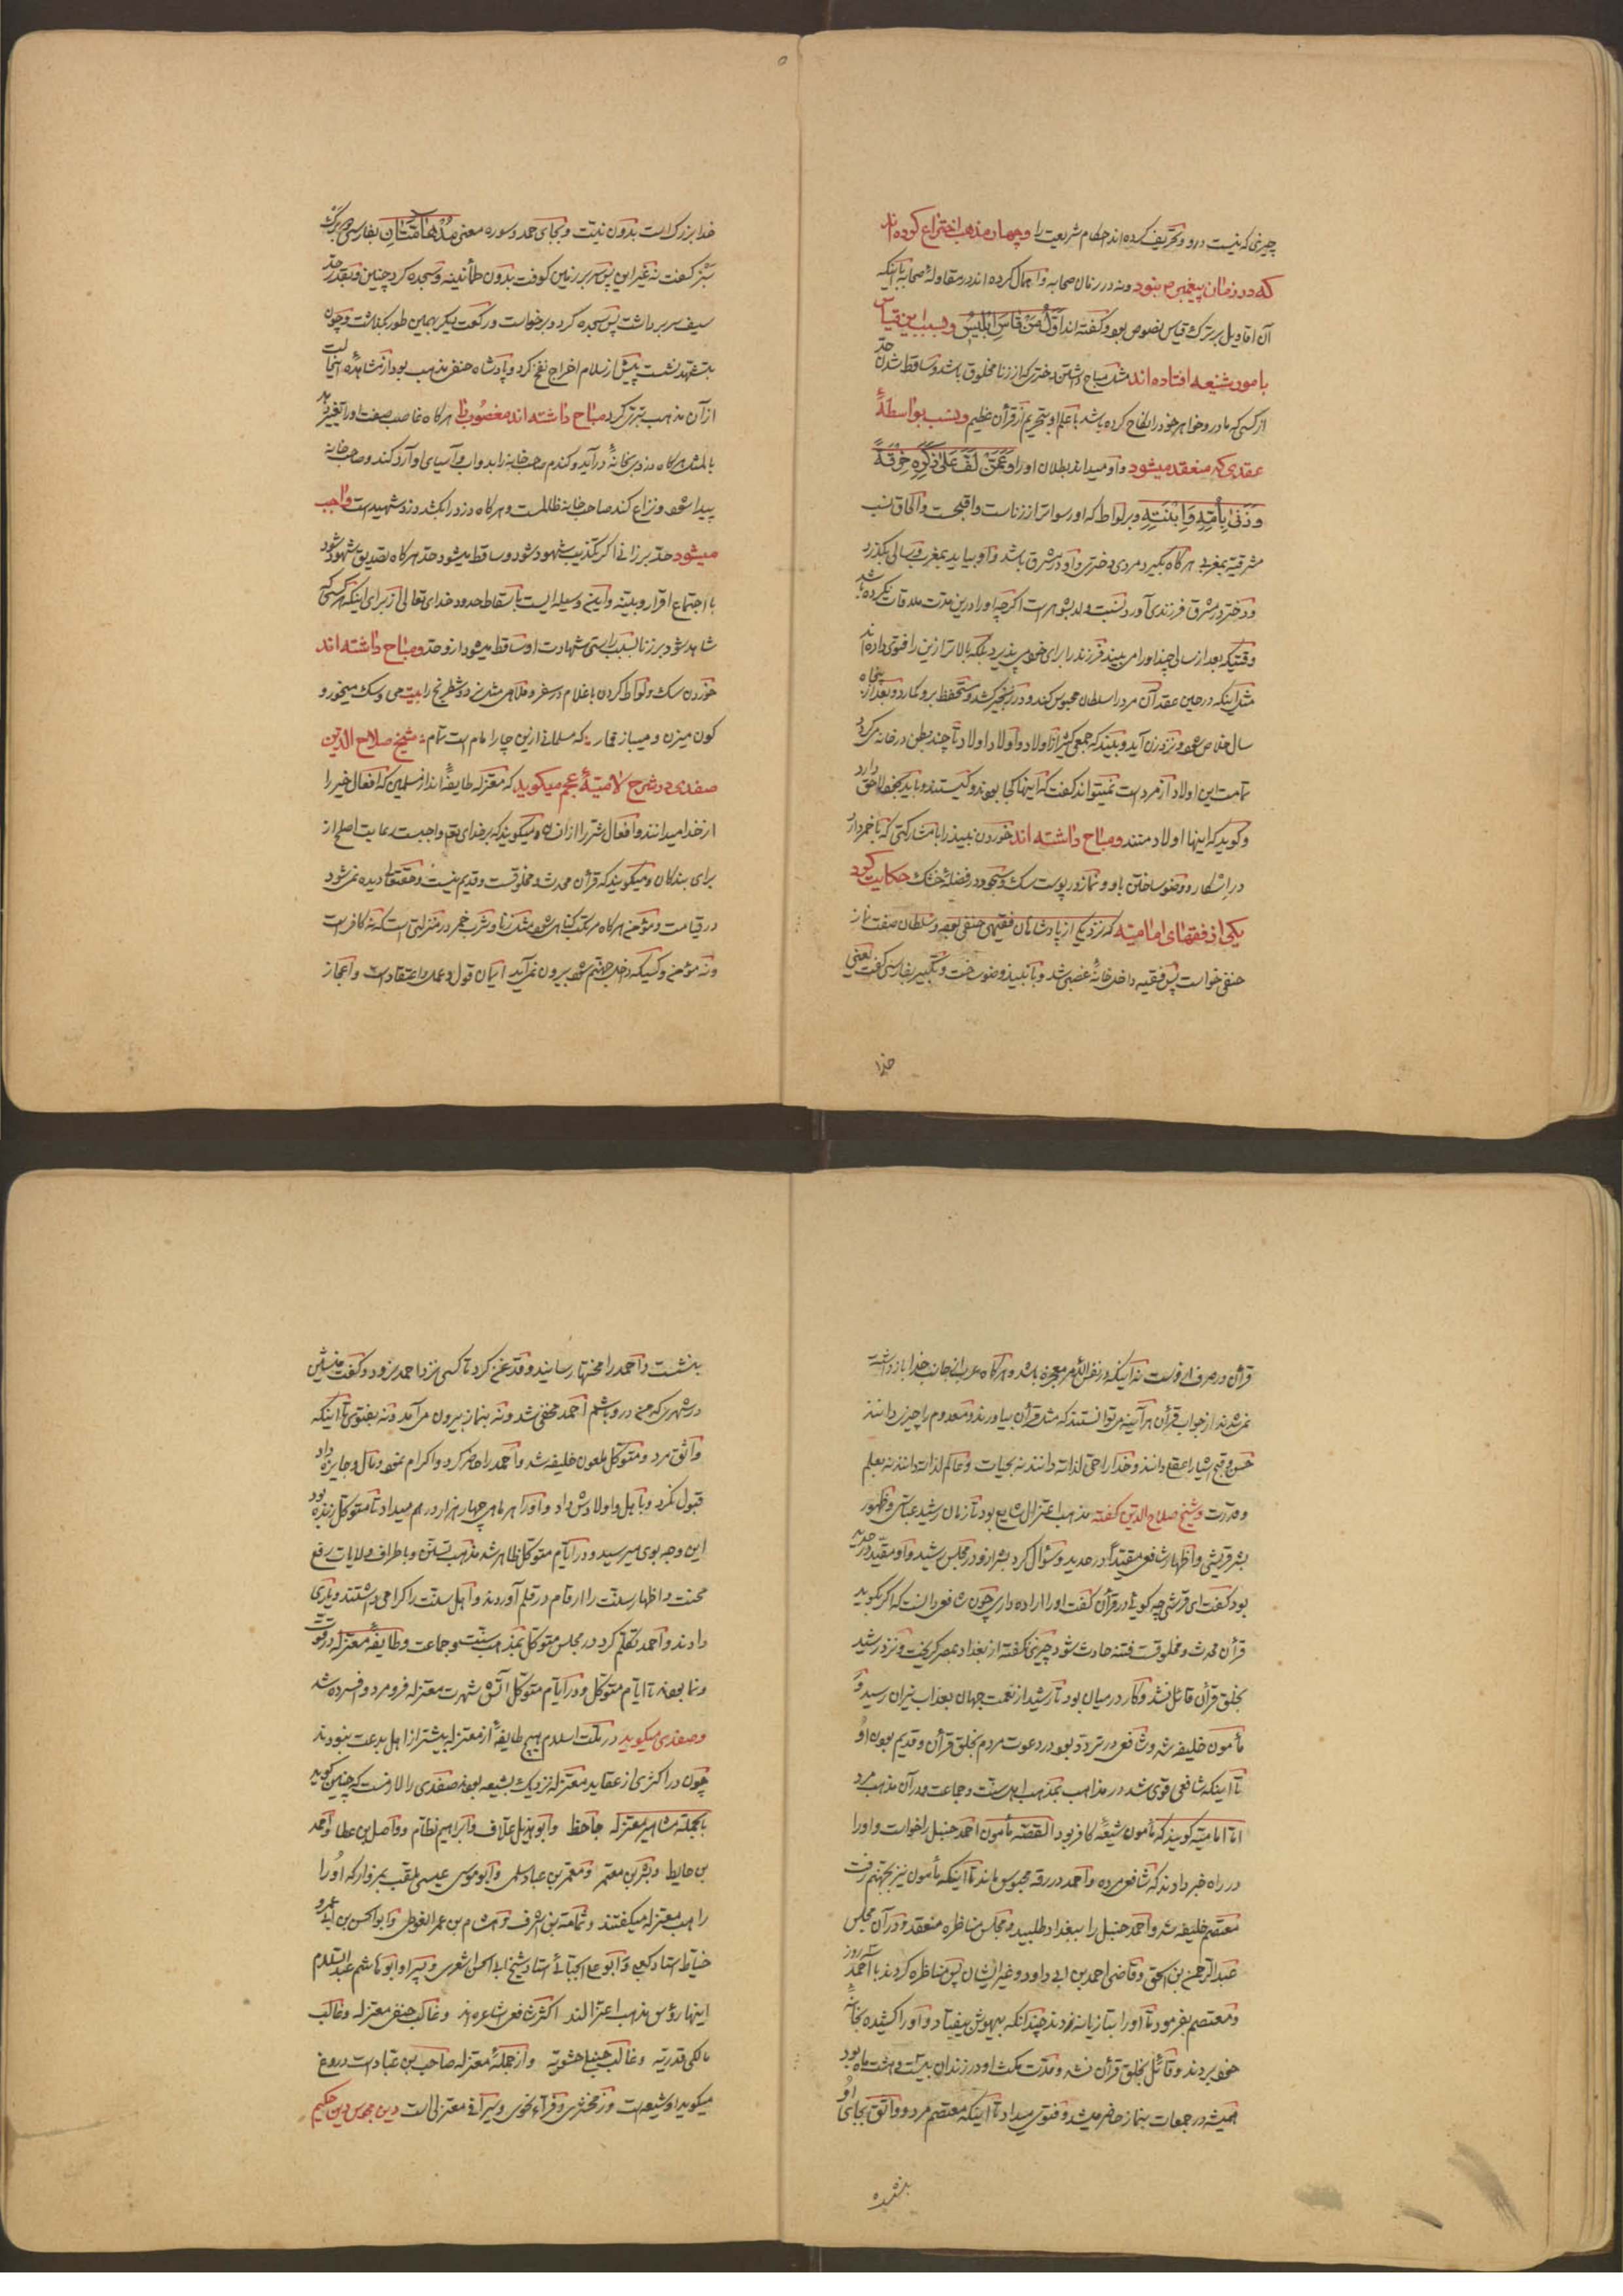 چیزی که نیست در او و تحریف کرده‌اند احکام شریعت را و چهار مذهب اختراع کرده‌اند
که در زمان پیغمبر ص نبود و نه در زمان صحابه و اهمال کرده‌اند در مقاوله صحابه با اینکه
آن اقاویل بر ترک قیاس نصوص بود و گفته‌اند اَوَّلُ مَنْ قاسَ اِبْلیسُ و بسبب این قیاس
بامور شنیعه افتاده‌اند مثل مباح داشتن دختری که از زنا مخلوق باشد و ساقط شدن حد
از کسی که مادر و خواهر خود را نکاح کرده باشد با علم او بتحریم از قرآن عظیم و نسب بواسطهٔ
عقدی که منعقد میشود و او میداند بطلان او را و عَمَّنْ لَفَّ عَلی ذَکَرِهِ خِرْقَةً
وَ زَنیٰ بِاُمِّهِ وَ اِبْنَتِهِ و بر لواط که او رسواتر از زناست و اقبحست و الحاق نسب
مشرقیه بمغربی هرگاه بگیرد مردی دختری و او در مشرق باشد و او بیاید بمغرب و سالی بگذرد
و دختر در مشرق فرزندی آورد نسبت ولد بشوهر است اگر چه او را درین مدت ملاقات نکرده باشد
وقتیکه بعد از سالی چند او را می‌بیند فرزند را برای خود می‌پذیرد بلکه بالاتر ازین را فتوی داده‌اند
مثل اینکه در حین عقد آن مرد را سلطان محبوس کند و در زنجیر کشد و مستحفظ برو گمارد و بعد از پنجاه
سال خلاص شود و نزد زن آید و ببیند که جمع کثیر از اولاد و اولاد اولاد تا چند بطن در خانه می‌گردد
تمامت این اولاد از مرد است نمیتواند گفت که اینها کجا بودند و کیستند و باید بخود لاحق دارد
و گوید که اینها اولاد منند و مباح داشته‌اند خوردن نبیذ را با مشارکتی که با خمر دارد
در اسکار و وضو ساختن باو و نماز در پوست سگ و سجود در فضلهٔ خشک حکایت کرد
یکی از فقهای امامیه که نزد یکی از پادشاهان فقیهی حنفی بود و سلطان صفت نماز
حنفی خواست پس فقیه داخل خانهٔ غصبی شد و با نبیذ وضو ساخت و تکبیر بفارسی گفت یعنی
خدا
خدا بزرگ است بدون نیت و بجای حمد و سوره معنی مُدْهامَّتانِ بفارسی دو برگ
سبز گفت نه غیر این پس سر بر زمین کوفت بدون طمأنینه و سجده کرد چنین و بقدر حد
سیف سر برداشت پس سجده کرد و برخواست و رکعت دیگر بهمین طور بگذاشت و چون
بتشهد نشست پیش از سلام اخراج نفخ کرد و پادشاه حنفی مذهب بود از مشاهدهٔ اینحالت
از آن مذهب تبری کرد مباح داشته‌اند مغصوب را هرگاه غاصب صفت او را تغییر دهد
بالمثل هرگاه دزدی بخانهٔ درآید و گندم صاحب خانه را بدواب و آسیای او آرد کند و صاحب خانه
پیدا شود و نزاع کند صاحب خانه ظالمست و هرگاه دزد را بکشد دزد شهیدست واجب
میشود حد بر زانی اگر تکذیب شهود شود و ساقط میشود حد هرگاه تصدیق شهود شود
با اجتماع اقرار و بینه و این وسیله ایست باسقاط حدود خدای تعالی از برای اینکه هر کسی
شاهد شود بر زنا بسبب راستی شهادت او ساقط میشود ازو حد و مباح داشته‌اند
خوردن سگ و لواط کردن با غلام در سفر و ملاهی مثل نرد و شطرنج را بیت می و سگ میخور و
کون میزن و میباز قمار ؞ که مسلمانی ازین چار امام است تمام ؞ شیخ صلاح الدین
صفدی در شرح لامیهٔ عجم میگوید که معتزله طایفهٔ‌اند از مسلمین که افعال خیر را
از خدا میدانند و افعال شر را از انسان و میگویند که بر خدای تع واجبست رعایت اصلح از
برای بندگان و میگویند که قرآن محدث و مخلوقست و قدیم نیست و حقتعالی دیده نمی‌شود
در قیامت و مؤمن هرگاه مرتکب گناهی شود مثل زنا و شرب خمر در منزلتی است که نه کافر است
و نه مؤمن و کسیکه داخل جهنم شود بیرون نمی‌آید ایمان قول و عمل و اعتقاد است و اعجاز
قرآن در صرف اوست نه اینکه در نفس الامر معجزه باشد و هرگاه عرب از جانب خدا بازداشته
نمی‌شدند از جواب قرآن هرآینه می‌توانستند که مثل قرآن بیاورند و معدوم را چیز دانند
حسن و قبح اشیا را عقلی دانند و خدا را حی لذاته دانند نه بحیات و عالم لذاته دانند نه بعلم
و قدرت و شیخ صلاح الدین گفته مذهب اعتزال شایع بود تا زمان رشید عباسی و ظهور
بشر قریشی و اظهار شافعی مقیداً در حدید و سؤال کرد بشر ازو در مجلس رشید و او مقید در حدید
بود گفت ای قرشی چه گوئی در قرآن گفت او را اراده داری چون شافعی دانست که اگر بگوید
قرآن محدث و مخلوقست فتنه حادث شود چیزی نگفته از بغداد بمصر گریخت و نزد رشید
بخلق قرآن قائل نشد و کار در میان بود تا رشید از نعمت جهان بعذاب نیران رسید و
مأمون خلیفه شد و شافعی در تردد بود در دعوت مردم بخلق قرآن و قدیم بودن او
تا اینکه شافعی قوی شد در مذاهب بمذهب اهل سنت و جماعت و در آن مذهب مرد
اما امامیه گویند که مأمون شیعهٔ کافر بود القصه مأمون احمد حنبل را خواست و او را
در راه خبر دادند که شافعی مرده و احمد در رقه محبوس ماند تا اینکه مأمون نیز بجهنم رفت
معتصم خلیفه شد و احمد حنبل را ببغداد طلبید و مجلس مناظره منعقد و در آن مجلس
عبد الرحمن بن اسحق و قاضی احمد بن ابی داود و غیر ایشان پس مناظره کردند با احمد سه روز
و معتصم بفرمود تا او را بتازیانه زدند چندانکه بیهوش بیفتاد و او را کشیده بخانهٔ
خود بردند و قائل بخلق قرآن نشد و مدت مکث او در زندان بیست و هشت ماه بود
همیشه در جمعات بنماز حاضر میشد و فتوی میداد تا اینکه معتصم مرد و واثق بجای او
بنشست و احمد را محنتها رسانید و قدغن کرد تا کسی نزد احمد نرود و گفت منشین
در شهری که من در او باشم احمد مخفی شد و نه بنماز بیرون می‌آمد و نه بفتوی تا اینکه
واثق مرد و متوکل ملعون خلیفه شد و احمد را حاضر کرد و اکرام نمود و مال و جایزه داد
قبول نکرد و باهل و اولادش داد و او را هر ماهی چهار هزار درهم میداد تا متوکل زنده بود
این وجه بوی میرسید و در ایام متوکل ظاهر شد مذهب تسنن و باطراف ولایات رفع
محنت و اظهار سنت را ارقام در قلم آوردند و اهل سنت را گرامی داشتند و یاری
دادند و احمد تکلم کرد در مجلس متوکل بمذهب سنت و جماعت و طایفهٔ معتزله در قوت
و نما بودند تا ایام متوکل و در ایام متوکل آتش شهرت معتزله فرو مرد و افسرده شد
و صفدی میگوید در ملت اسلام هیچ طایفهٔ از معتزله بیشتر از اهل بدعت نبودند
چون در اکثری از عقاید معتزله نزدیک بشیعه بودند صفدی را لازمست که چنین گوید
بالجمله مشاهیر معتزله جاحظ و ابو هذیل علاف و ابراهیم نظام و واصل بن عطا و احمد
بن حایط و بشر بن معتمر و معمر بن عباد سلمی و ابو موسی عیسی ملقب بمزدار که او را
راهب معتزله میگفتند و ثمامة بن اشرف و هشام بن عمر الفوطی و ابو الحسن بن ابی عمرو
خیاط استاد کعبی و ابو علی الجبائی استاد شیخ ابی الحسن اشعری و پسر او ابو هاشم عبد السلام
اینها رؤس مذهب اعتزالند اکثر شافعی اشاعره‌اند و غالب حنفی معتزله و غالب
مالکی قدریه و غالب حنبلی حشویه و از جملهٔ معتزله صاحب بن عباد است دروغ
میگوید او شیعه است و زمخشری و فرّاء نحوی و سیرافی معتزلی است دین مجوس دین حکیم
بنشست